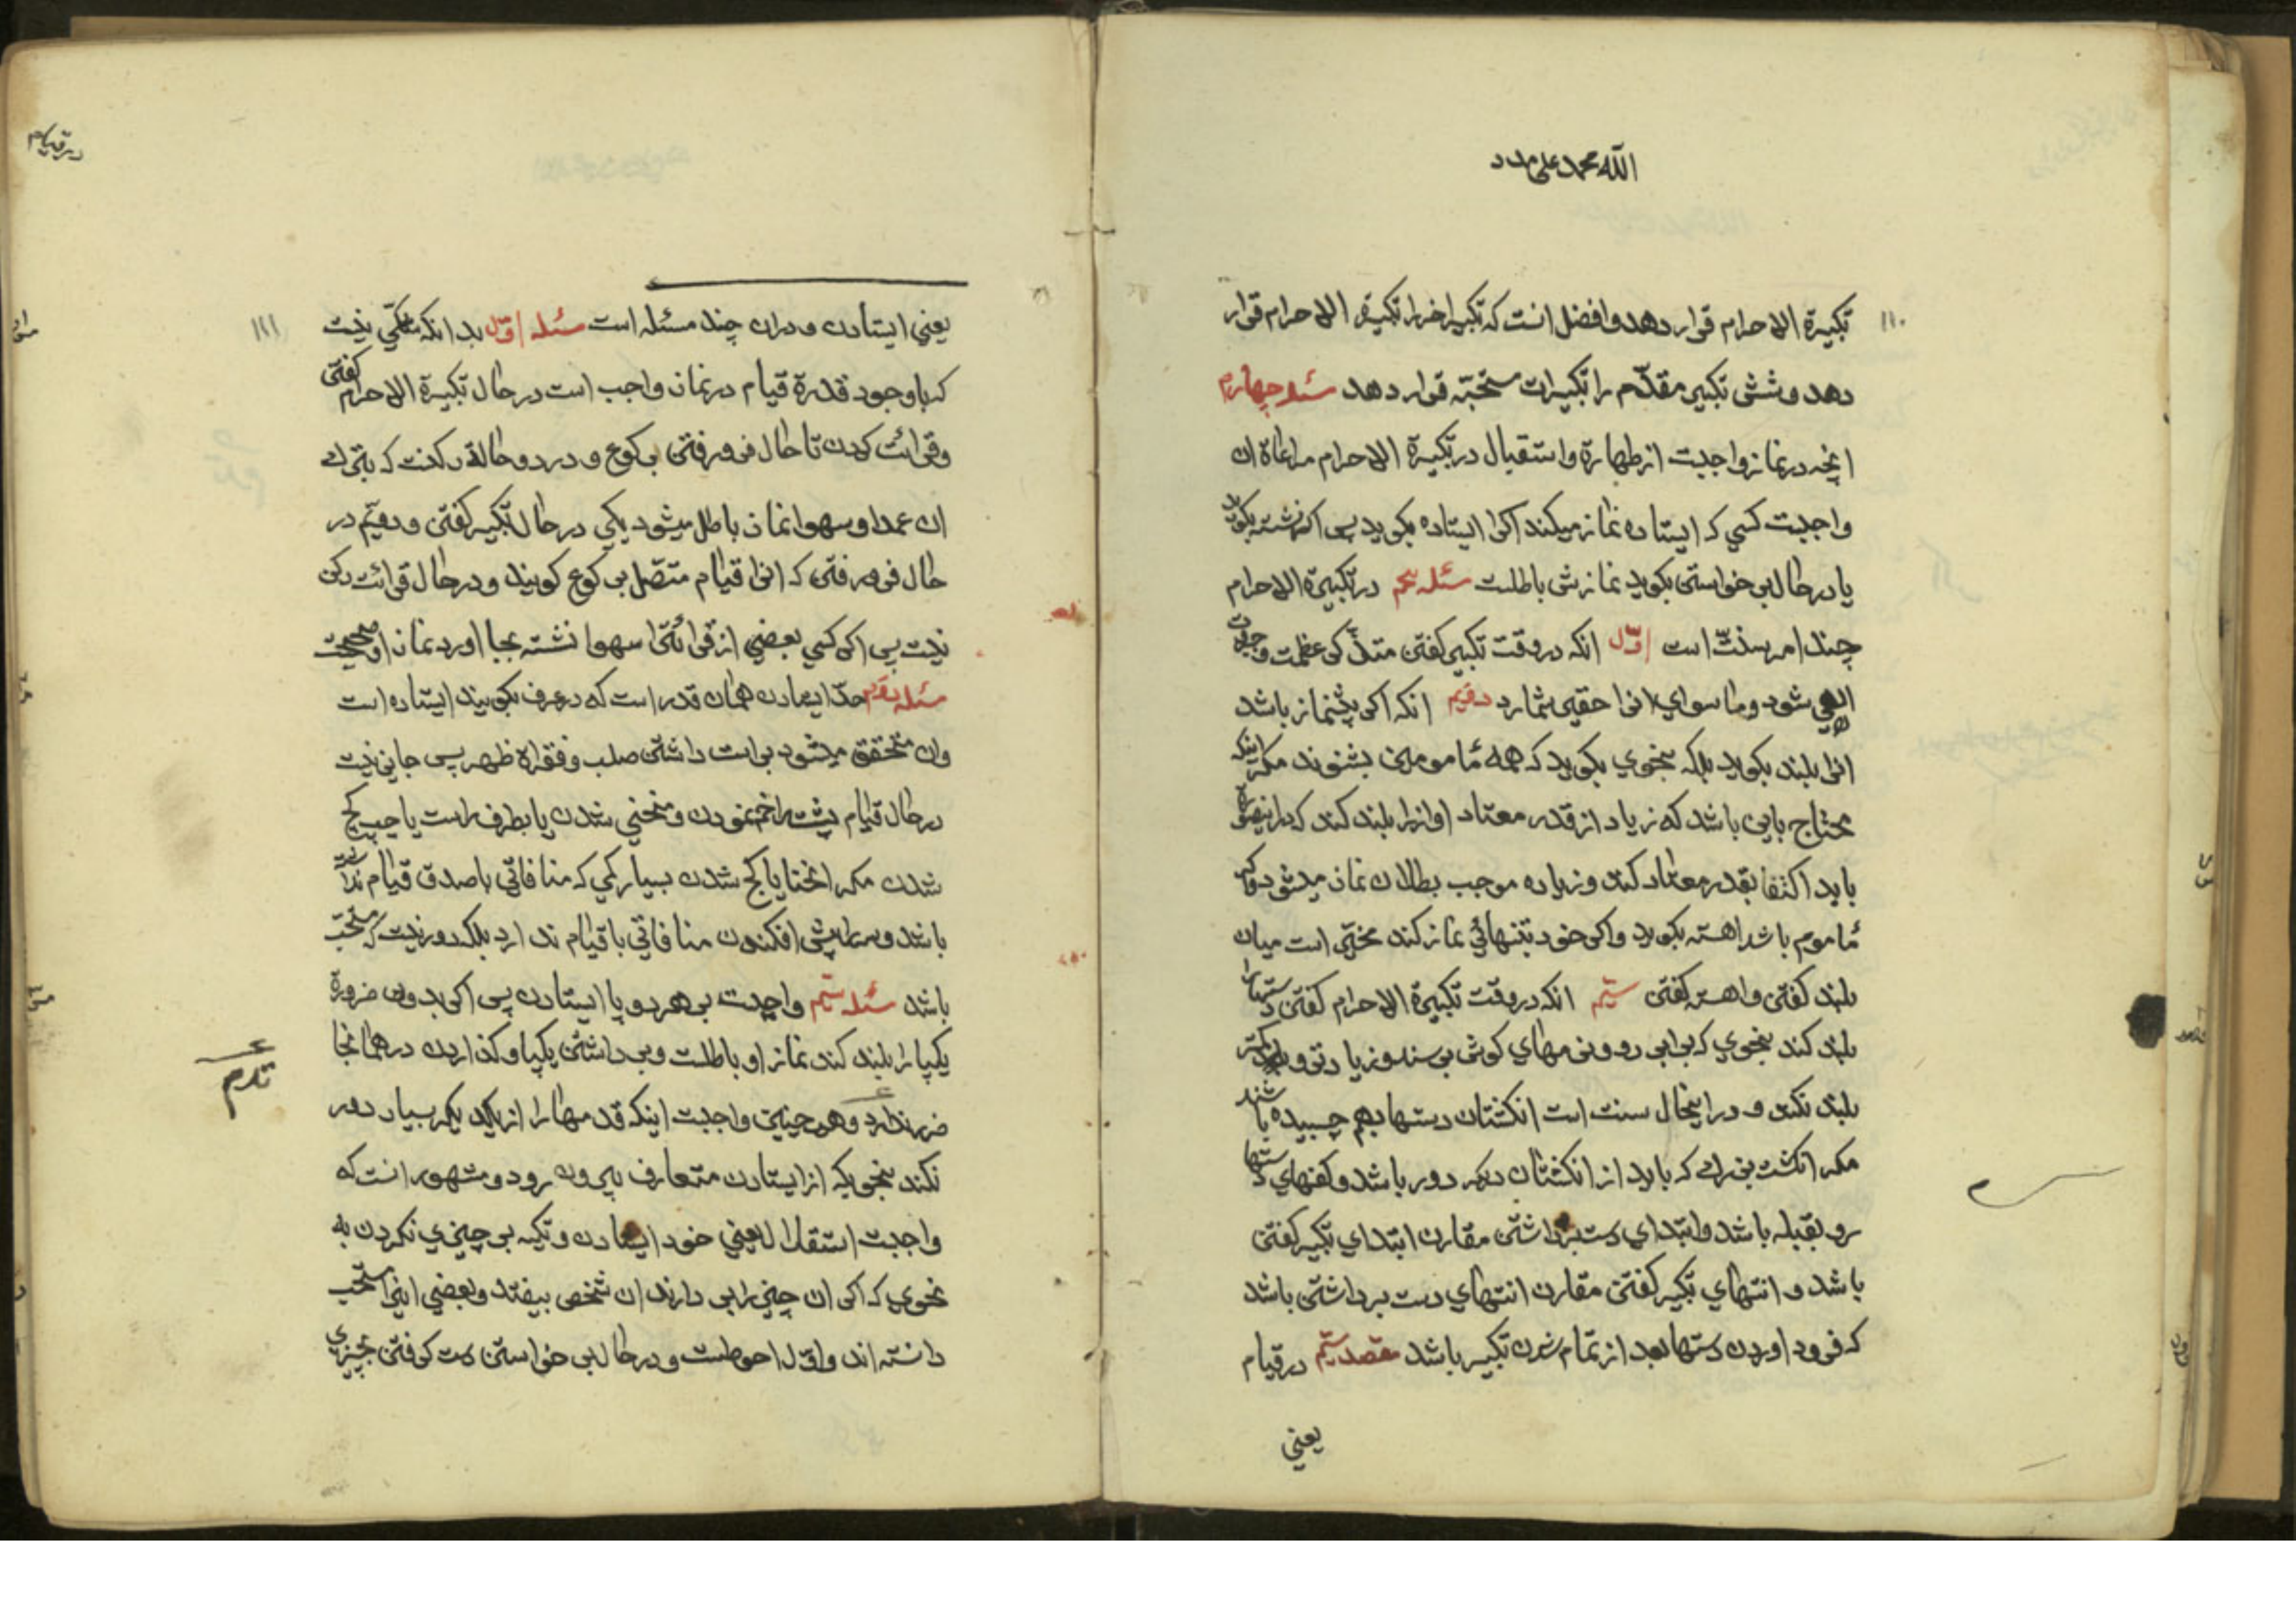 الله محمد علی مدد
۱۱۰
تکبیرة الاحرام قرار دهد و افضل انست که تکبیر اخر را تکبیرة الاحرام قرار
دهد و شش تکبیر مقدّم را تکبیرات مستحبّه قرار دهد مسئله چهارم
انچه در نماز واجبست از طهارة و استقبال در تکبیرة الاحرام مراعاة ان
واجبست کسي که ایستاده نماز میکند اکر ایستاده بکوید پس اکر نشسته بکوید
یا در حال بر خواستن بکوید نمازش باطلست مسئله پنجم در تکبیرة الاحرام
چند امر سنّت است اوّل انکه در وقت تکبیر کفتن متذکر عظمت و جلال
الهي شود و ما سواي او را حقیر شمارد دویّم انکه اکر پیشنماز باشد
انرا بلند بکوید بلکه بنحوي بکوید که همه مأمومین بشنوند مکر اینکه
محتاج باین باشد که زیاد از قدر معتاد اواز را بلند کند که در اینصورة
باید اکتفا بقدر معتاد کند و زیاده موجب بطلان نماز میشود و اکر
مأموم باشد اهسته بکوید و اکر خود بتنهائي نماز کند مخیّر است میان
بلند کفتن و اهسته کفتن سیّم انکه در وقت تکبیرة الاحرام کفتن دستها را
بلند کند بنحوي که برابر رو و نرمهاي کوش برسند و زیادتر و کمتر
بلند نکند و در اینحال سنت است انکشتان دستها بهم چسبیده باشند
مکر انکشت بزرك که باید از انکشتان دیکر دور باشد و کفهاي دستها
رو بقبله باشد و ابتداي دست برداشتن مقارن ابتداي تکبیر کفتن
باشد و انتهاي تکبیر کفتن مقارن انتهاي دست برداشتن باشد
که فرود اوردن دستها بعد از تمام شدن تکبیر باشد مقصد سیّم در قیام
یعني
در قیام
۱۱۱
یعني ایستادن و دران چند مسئله است مسئله اوّل بدانکه شکّي نیست
که با وجود قدرة قیام در نماز واجب است در حال تکبیرة الاحرام کفتن
و قرائت کردن تا حال فرو رفتن برکوع و در دو حالة رکنست که بترك
ان عمدا و سهوا نماز باطل میشود یکي در حال تکبیر کفتن و دویّم در
حال فرو رفتن که انرا قیام متّصل برکوع کویند و در حال قرائت رکن
نیست پس اکر کسي بعضي از قرائت را سهوا نشسته بجا اورد نماز او صحیحست
مسئله دویّم حدّ ایستادن همان قدر است که در عرف بکویند ایستاده است
وان متحقق میشود براست داشتن صلب و فقراة ظهر پس جایز نیست
در حال قیام پشت را خم نمودن و منحني شدن یا بطرف راست یا چپ کج
شدن مکر انحنا یا کج شدن بسیار کمي که منافاتي با صدق قیام نداشته
باشد و سر را پیش افکندن منافاتي با قیام ندارد بلکه دور نیست که مستحبّ
باشد مسئله سیّم واجبست بر هر دو پا ایستادن پس اکر بدون ضرورة
یکپا را بلند کند نماز او باطلست و بر داشتن یکپا و کذاردن در همانجا
ضرر ندارد و همچنین واجبست اینکه قدمها را از یکدیکر بسیار دور
نکند بنحویکه از ایستادن متعارف بیرون رود و مشهور انست که
واجبست استقلال یعني خود ایستادن و تکیه بر چیزي نکردن به
نحوي که اکر ان چیز را بر دارند ان شخص بیفتد و بعضي اینرا مستحب
دانسته اند و اوّل احوطست و در حال بر خواستن دست کرفتن بچیزي